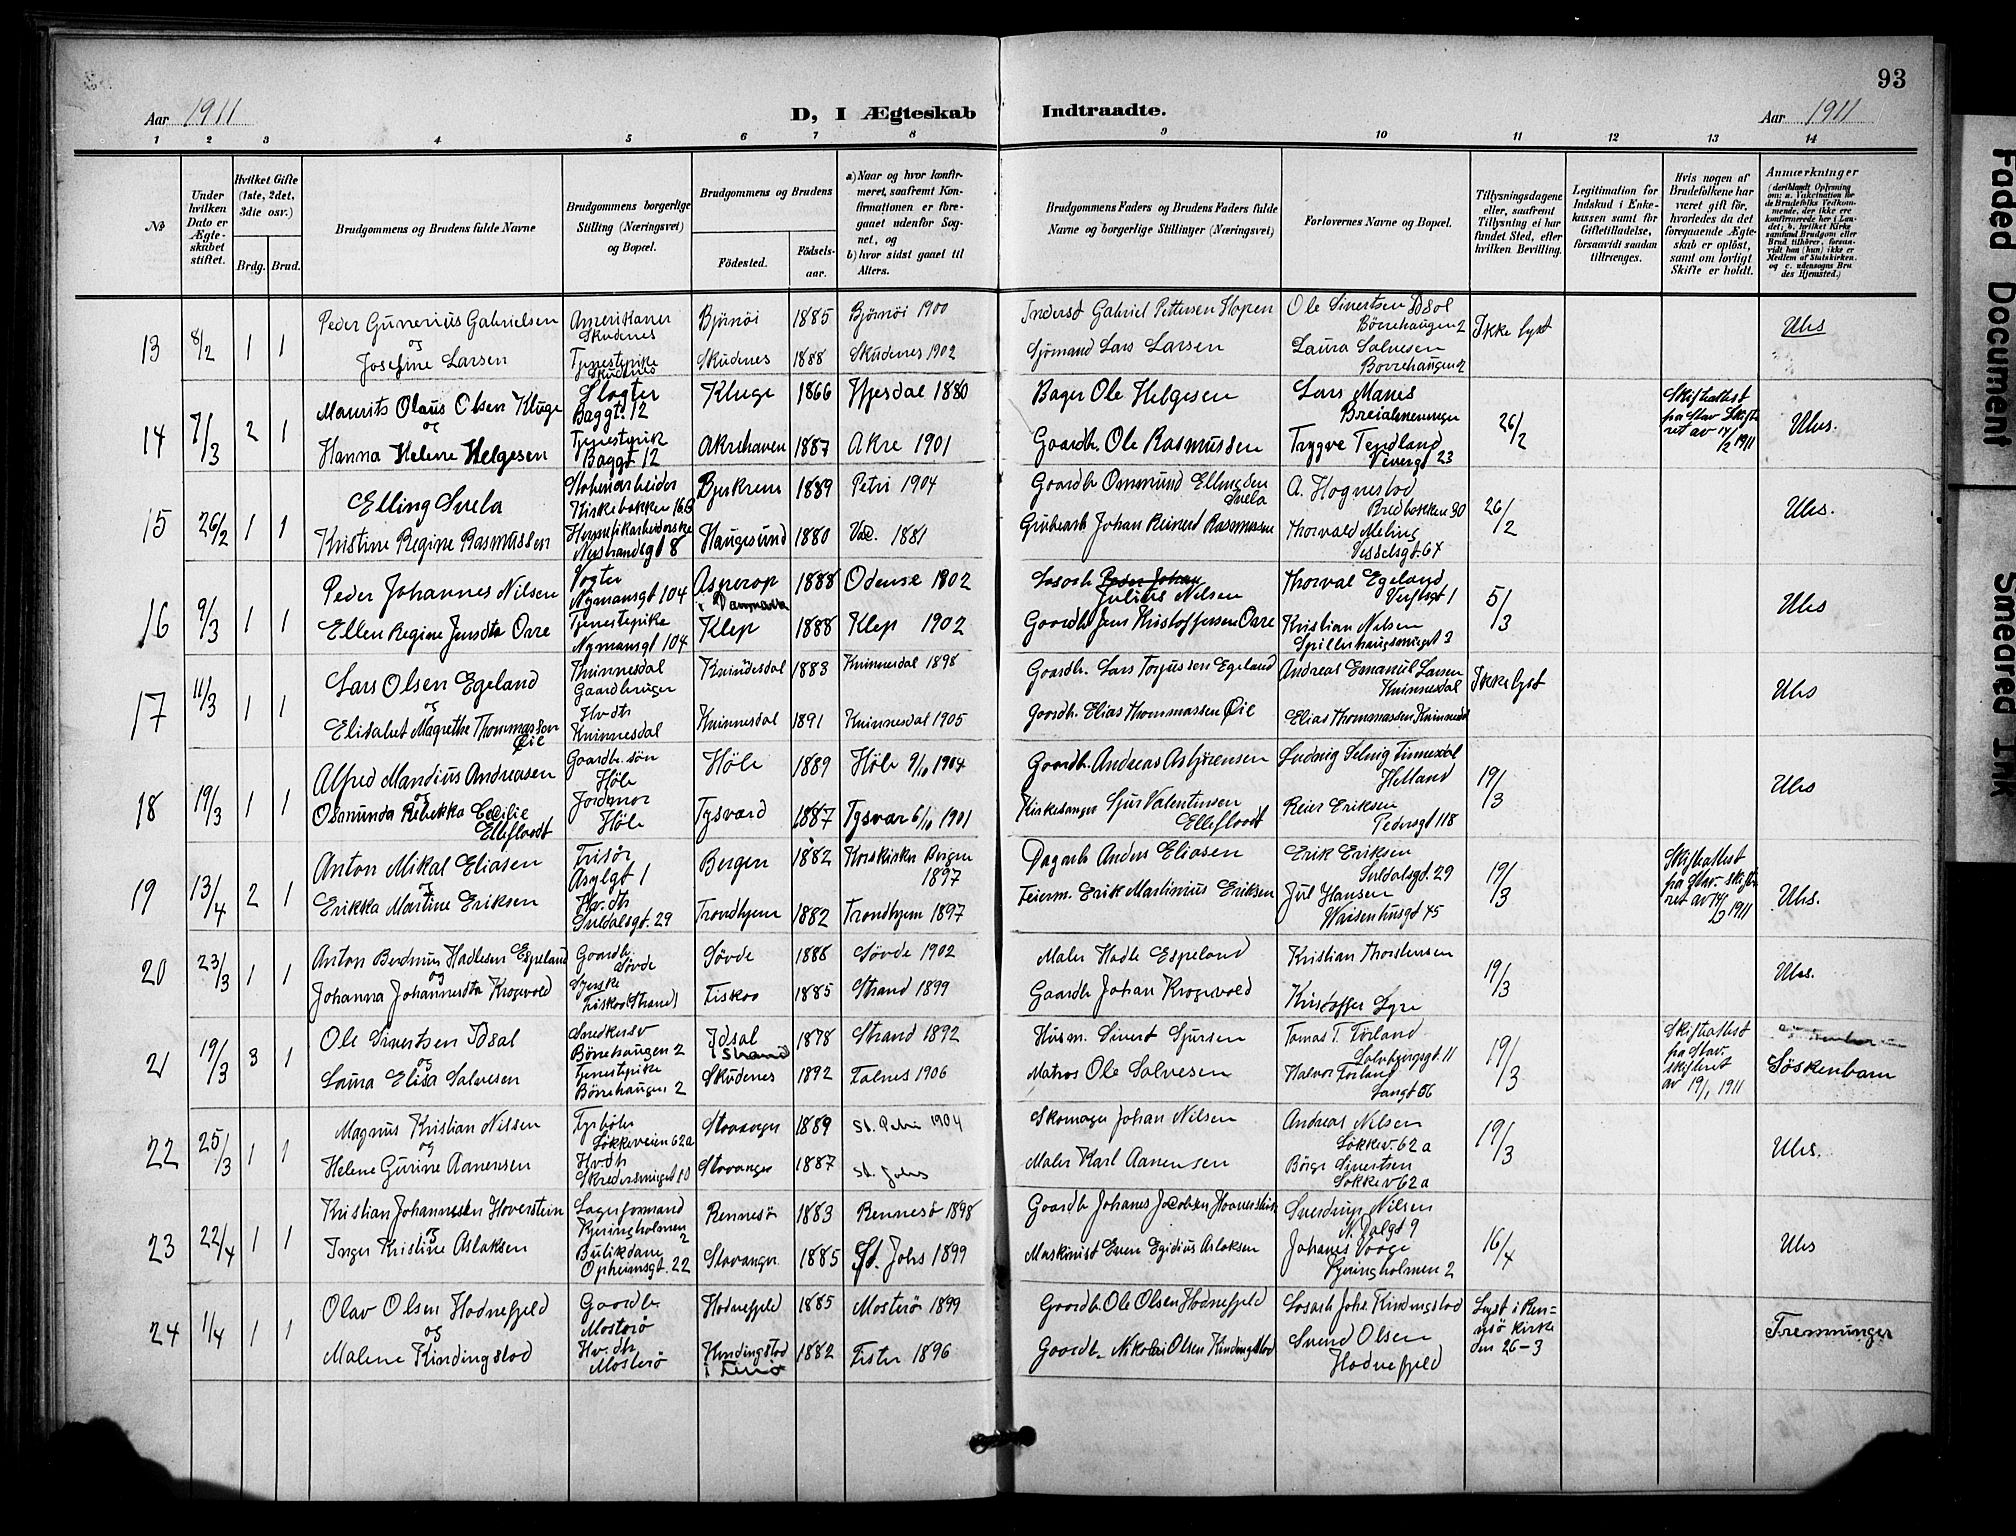 93
Aar 1911
D, I Ægteskab Indtraadte.
Aar 1911
1 2 3 4 5 6 7 8 9 10 11 12 13 14
No
Under hvilken Dato er Ægteskabet stiftet.
Hvilket Gifte (1ste, 2det, 3die osv.)
Brdg. Brud.
Brudgommens og Brudens fulde Navne
Brudgommens borgerlige Stilling (Næringsvei) og Bopæl.
Brudgommens og Brudens
Fødested.
Fødselsaar.
a) Naar og hvor konfirmeret, saafremt Konfirmationen er foregaaet udenfor Sognet, og
b) hvor sidst gaaet til Alters.
Brudgommens Faders og Brudens Faders fulde Navne og borgerlige Stillinger (Næringsvei)
Forlovernes Navne og Bopæl.
Tillysningsdagene eller, saafremt Tillysning ei har fundet Sted, efter hvilken Bevilling.
Legitimation for Indskud i Enkekassen samt for Giftetilladelse, forsaavidt saadan tiltrænges.
Hvis nogen af Brudefolkene har været gift før, hvorledes da det foregaaende Ægteskab er opløst, samt om lovligt Skifte er holdt.
Anmærkninger
13 8/2 1 1 Peder Gunerius Gabrielsen Amerikaner Skudenes Bjørnøi 1885 Bjørnøi 1900 Inderst Gabriel Pettersen Hopen Ole Sivertsen Idsøl Børrehaugen 2 Ikke lyst Uhs
og
Josefine Larsen Tjenestepike Skudenes Skudenes 1888 Skudenes 1902 Sjömand Lars Larsen Laura Salvesen Børrehaugen 2
14 7/3 2 1 Maurits Olaus Olsen Kluge Slagter Baggt. 12 Kluge 1866 Hjesdal 1880 Bager Ole Helgesen Lars Manes 26/2 Skifteattest fra Stav Skifteret av 14/2 1911 Uhs.
og
Hanna Helene Helgesen Tjenestepik Baggt 12 Akrehavn 1887 Akre 1901 Gaardb. Ole Rasmussen Trygve Tendland 23
15 26/2 1 1 Elling Svela Kirkebakken 16B Bjerkrem 1889 Petri 1904 Gaardb Ommund Ellingsen Svela A. Hognestad Bredbakken 30 26/2 Uhs.
Kristine Regine Rasmussen Nystrandsgt 8 Haugesund 1880 Johan Reinert Rasmussen Thorvald Meling Vesselsgt. 67
16 9/3 1 1 Peder Johannes Nilsen Vogter Nymansgt 104 Asperop i Danmark 1888 Odense 1902 Losarb Peder Johan Julius Nilsen Thorval Egeland Verftsgt 1 5/3 Uhs
Ellen Regine Jensdtr Orre Tjenestepike Nymansgt 104 Klep 1888 Klep 1902 Gaardb Jens Kristoffersen Orre Kristian Nilsen 3
17 11/3 1 1 Lars Olsen Egeland Kvinnesdal Gaardbruger Kvinnesdal 1883 Kvinnesdal 1898 Gaardb. Lars Torjussen Egeland Andreas Emanuel Larsen Kvinnesdal Ikke lyst Uhs
og
Elisabet Magrethe Thommassen Øie Hvdtr Kvinnesdal Kvinnesdal 1891 Kvinnesdal 1905 Gaardb. Elias Thommassen Øie Elias Thommassen Kvinnesdal
18 19/3 1 1 Alfred Mandius Andreasen Gaardb. søn Høle Høle 1889 Høle 9/10 1904 Gaardb. Andreas Asbjørensen Ludvig Selvig Helland 19/3 Uhs
og
Osmunda Rebekka Cecilie Elleflaadt Jordmor Høle Tysværd 1887 Tysvær 6/10 1901 Kirkesanger Sjur Valentinsen Elleflaadt Reier Eriksen Pedersgt 118
19 13/4 2 1 Anton Mikal Eliasen Frisør Asylgt 1 Bergen 1882 Korskirken Bergen 1897 Dagarb Anders Eliasen Erik Eriksen Suldalsgt. 29 19/3 Skifteattest fra Stav. skifteret av 14/2 1911 Uhs.
og
Erikka Martine Eriksen Hv.dtr Suldalsgt. 29 Trondhjem 1882 Trondhjem 1897 Feierm. Erik Martinius Eriksen Jul Hansen Waisenhusgt 45
20 23/3 1 1 Anton Berdinus Hadlesen Espeland Gaardb. Søvde Søvde 1888 Søvde 1902 Maler Hadle Espeland Kristian Thorstensen 19/3 Uhs.
og
Johanna Johannesdtr Krogevold Syerske Fiskaa (Strand) Fiskaa 1885 Strand 1899 Gaardb Johan Krogevold Kristoffer Lyre
21 19/3 3 1 Ole Sivertsen Idsal Snedkersv Børrehaugen 2 Idsal i Strand 1878 Strand 1892 Husm. Sivert Sjursen Tomas T. Førland 11 19/3 Skifteattest fra Stav. skifteret av 19/1 1911 Söskenbarn
og
Laura Elisa Salvesen Tjenestepike Børrehaugen 2 Skudenes 1892 Falnes 1906 Matros Ole Salvesen Halvor Førland Langt 56
22 25/3 1 1 Magnus Kristian Nilsen Fyrbøter Løkkeveien 62a Stavanger 1889 St. Petri 1904 Skomager Johan Nilsen Andreas Nilsen Løkkev 62 a 19/3 Uhs.
og
Helene Gurine Aanensen Hv.dtr 10 Stavanger 1887 St. Johs Maler Karl Aanensen Børge Sivertsen Løkkev 62 a
23 22/4 1 1 Kristian Johannesen Hoverstein Lagerformand Kjeringholmen 2 Rennesø 1883 Rennesø 1898 Gaardb Johanes Jacobsen Sverdrup Nilsen N. Dalgt 9 16/4 Uhs
og
Inger Kristine Aslaksen Butikdame Opheimsgt. 22 Stavanger 1885 St. Johs 1899 Maskinist Even Egidius Aslaksen Johanes Voage Kjeringholmen 2
24 1/4 1 1 Olav Olsen Hodnefjeld Gaardb Mosterø Hodnefjeld 1885 Mosterø 1899 Gaardb. Ole Olsen Hodnefjeld Losarb Johs. Kindingstad Lyst i Rennesø kirke den 26-3 Fremmunger
og
Malene Kindingstad Hv.dtr Mosterø Kindingstad i Finnø 1882 Fister 1896 Gaardb. Nikolai Olsen Kindingstad Svend Olsen Hodnefjeld
Faded Document
Smeared Ink